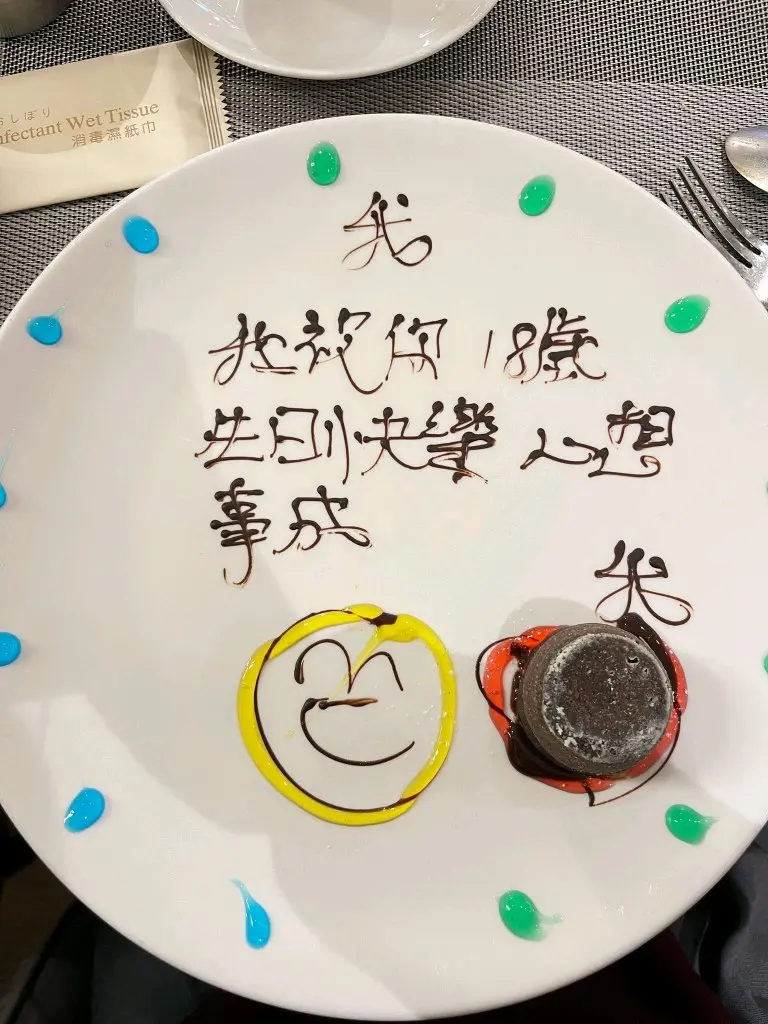 おしぼり
nfectant Wet Tissue
消毒濕紙巾
我
我祝你18歲
生日快樂 心想
事成
我